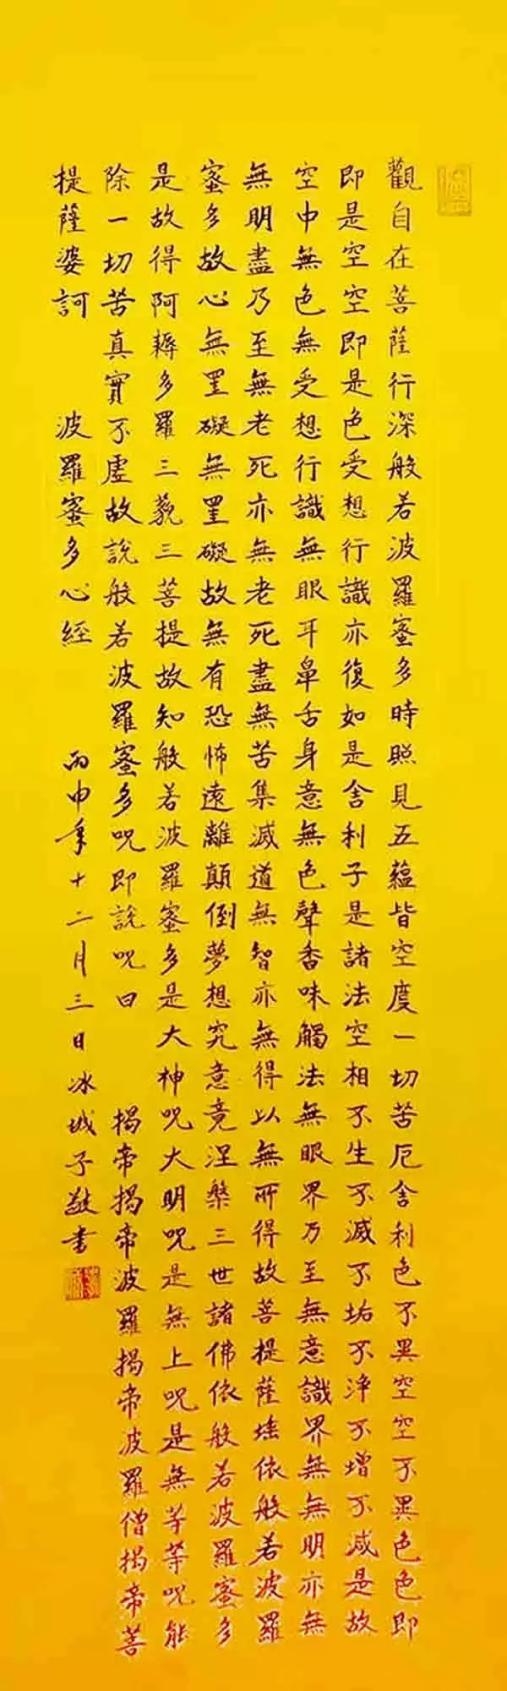 觀自在菩薩行深般若波羅蜜多時照見五蘊皆空度一切苦厄舍利色不異空空不異色色即
即是空空即是色受想行識亦復如是舍利子是諸法空相不生不滅不垢不淨不增不減是故
空中無色無受想行識無眼耳鼻舌身意無色聲香味觸法無眼界乃至無意識界無無明亦無
無明盡乃至無老死亦無老死盡無苦集滅道無智亦無得以無所得故菩提薩埵依般若波羅
蜜多故心無罣礙無罣礙故無有恐怖遠離顛倒夢想究意竟涅槃三世諸佛依般若波羅蜜多
是故得阿耨多羅三藐三菩提故知般若波羅蜜多是大神呪大明呪是無上呪是無等等呪能
除一切苦真實不虛故說般若波羅蜜多呪即說呪曰 揭帝揭帝波羅揭帝波羅僧揭帝菩
提薩婆訶 波羅蜜多心經 丙申年十二月三日冰城子敬書